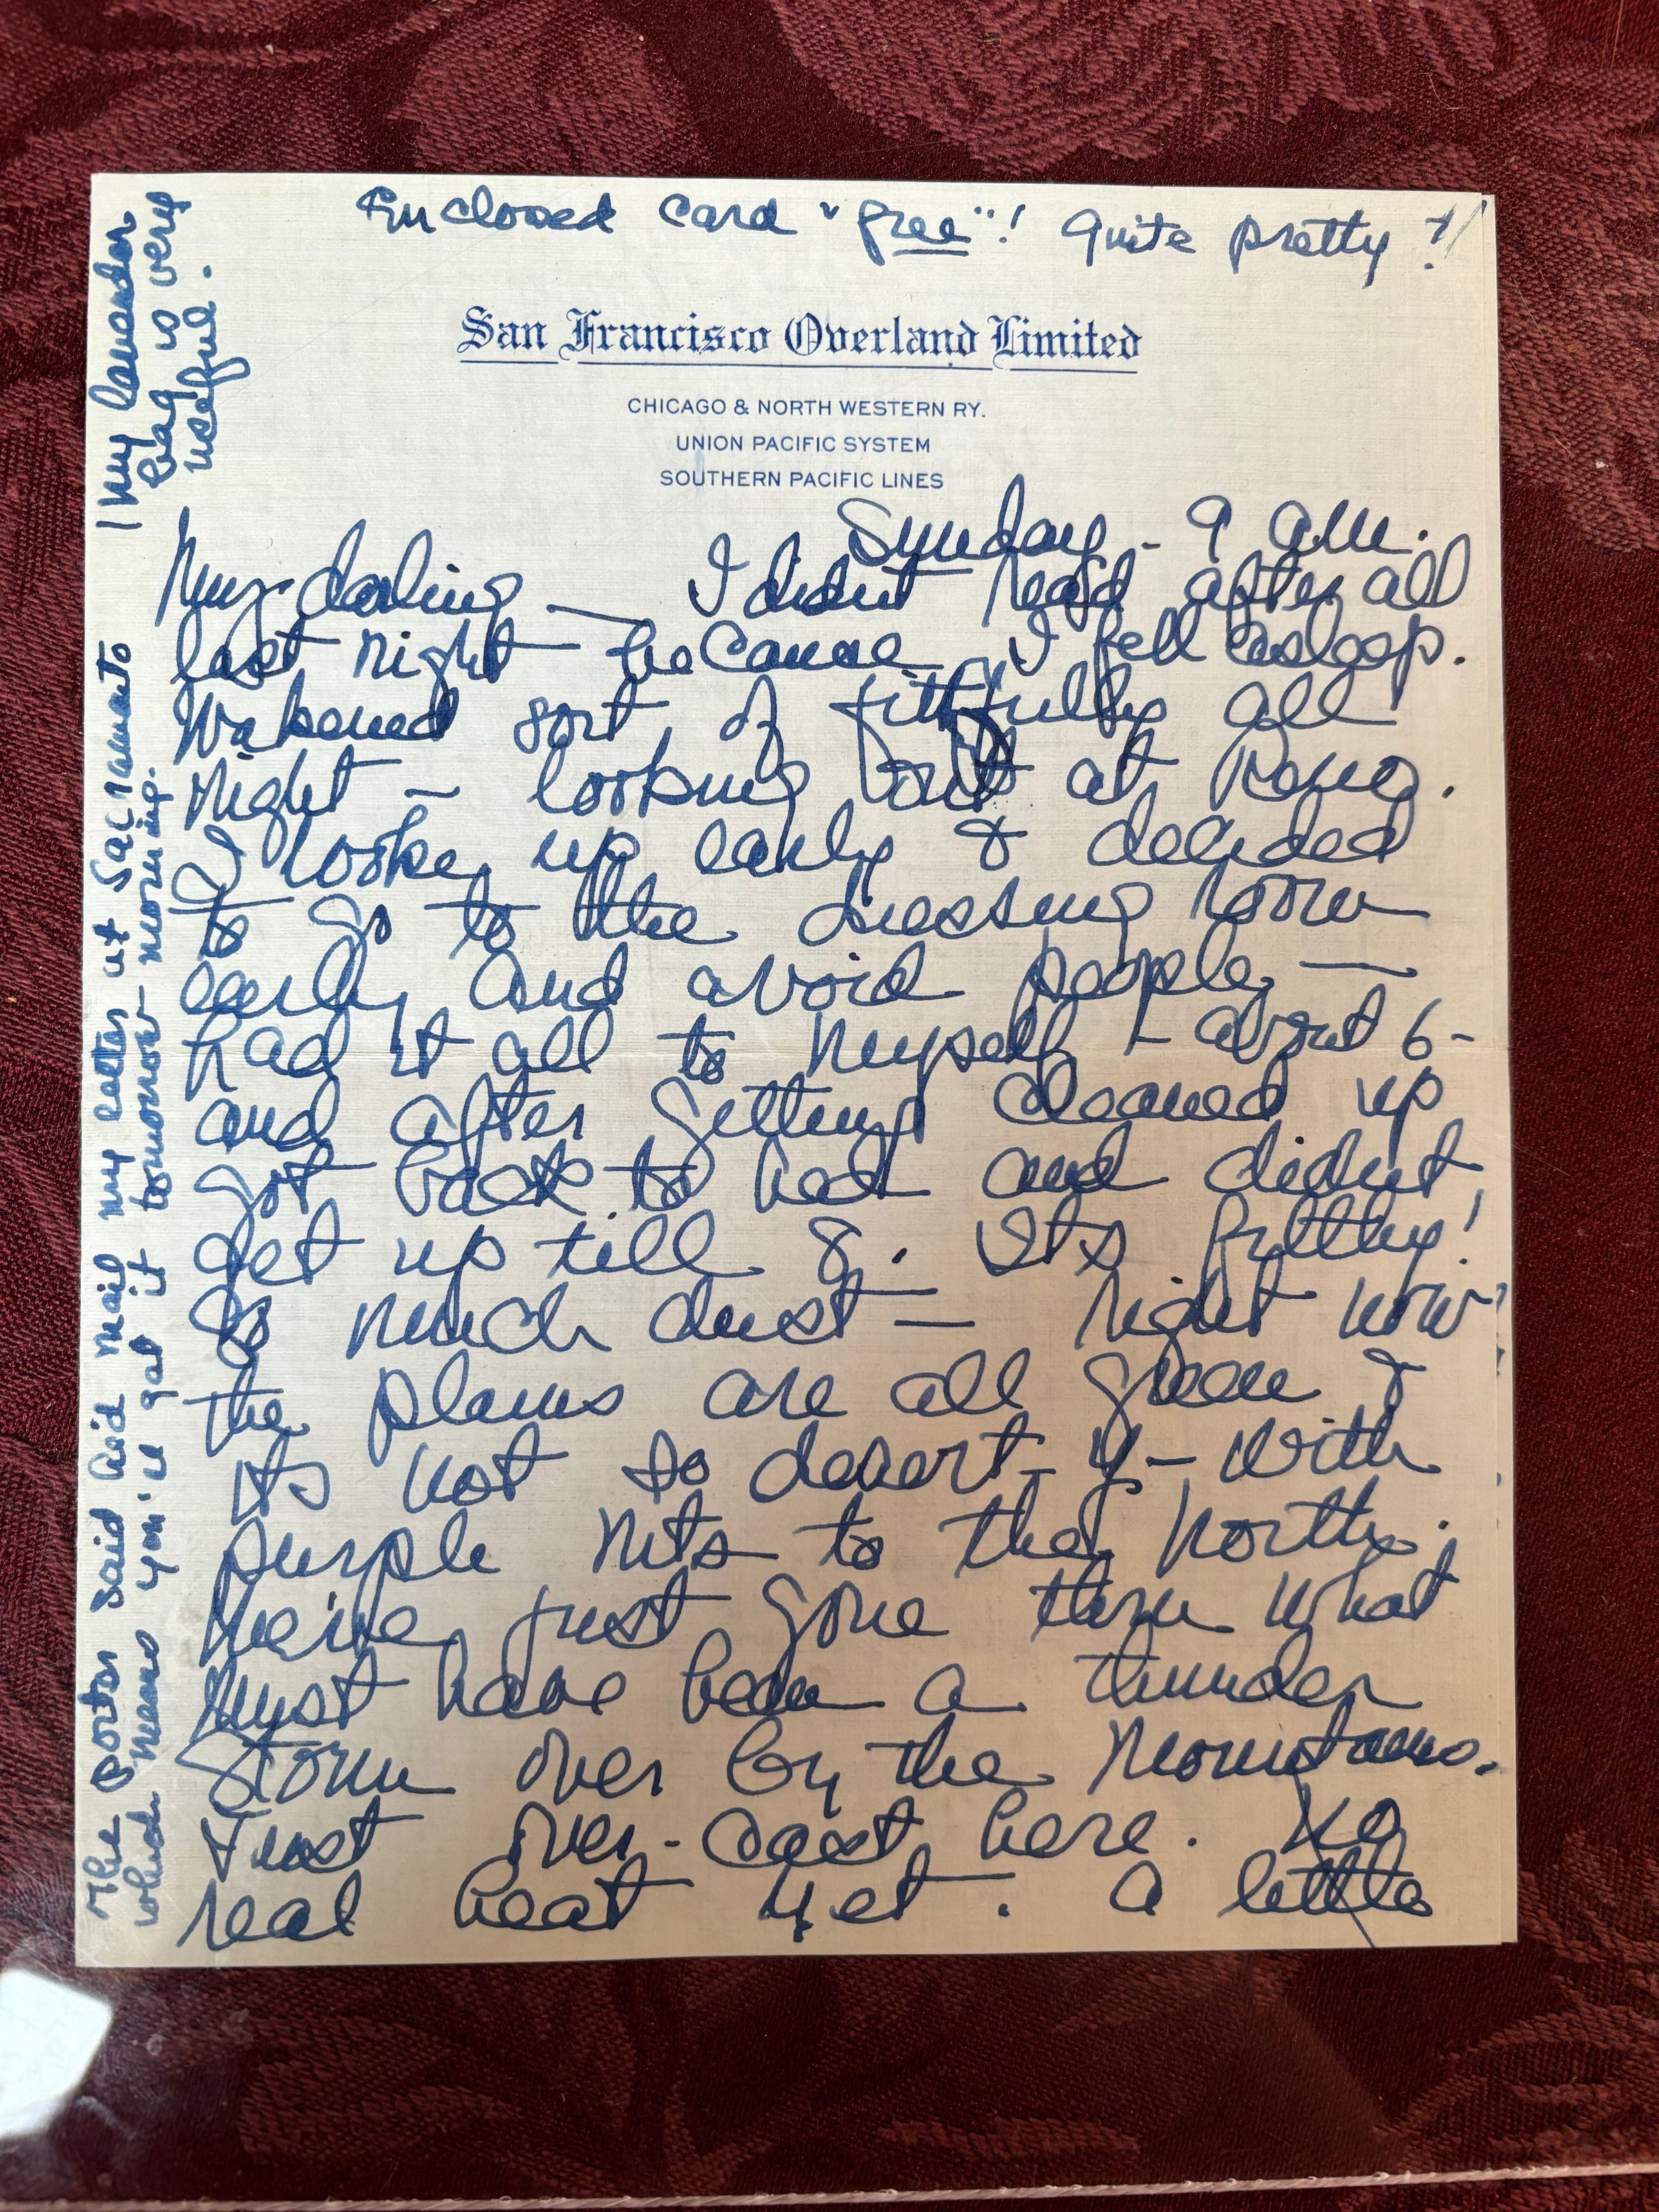 Enclosed card "free"! Quite pretty?!
San Francisco Overland Limited
CHICAGO & NORTH WESTERN RY.
UNION PACIFIC SYSTEM
SOUTHERN PACIFIC LINES
Sunday - 9 am.
My darling — I didnt read after all
last night - because I fell asleep.
Wakened sort of fittfully all
night - looking out at Reno.
I woke up early & decided
to go to the dressing room
early and avoid people —
had it all to myself - about 6 -
and after getting cleaned up
got back to bed and didnt
get up till 8. Its filthy!
So much dust — right now
the plains are all green &
its not so desert-y - with
purple Mts to the north.
We've just gone thru what
must have been a thunder
storm over by the mountains.
Just over-cast here. No
real heat yet. A little
The porter said he'd mail my letter at Sacramento
which means you'll get it tomorrow morning.
My lavender
bag is very
useful.